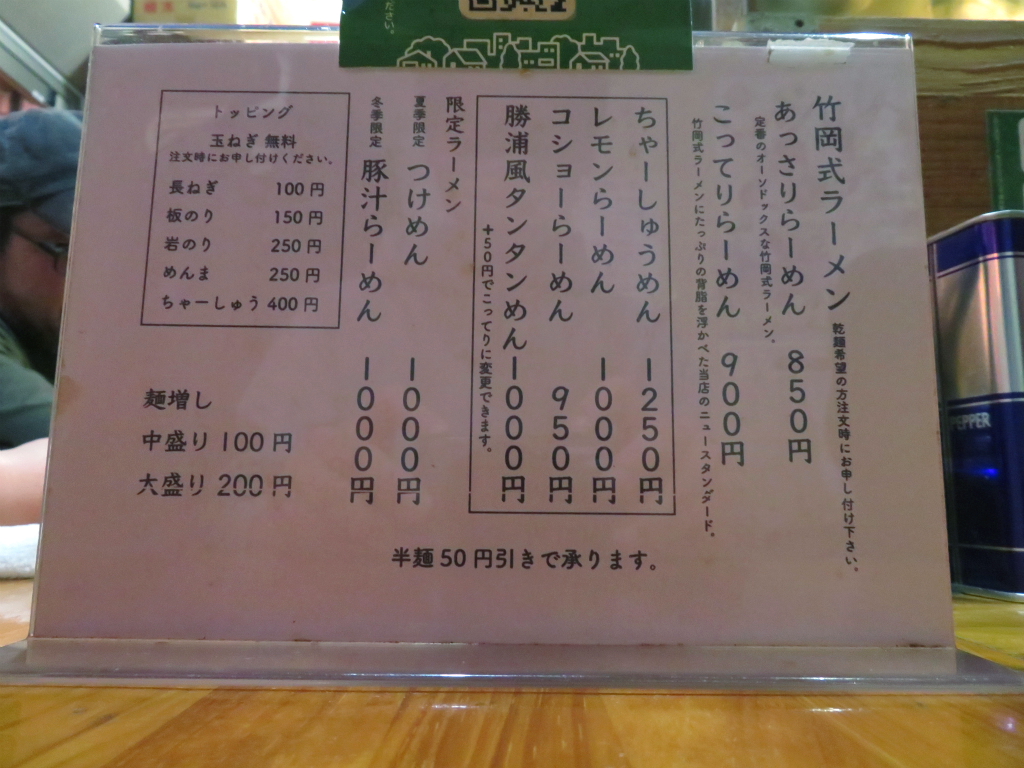 ださい。
竹岡式ラーメン
乾麺希望の方注文時にお申し付け下さい。
あっさりらーめん 850円
定番のオーソドックスな竹岡式ラーメン、
こってりらーめん 900円
竹岡式ラーメンにたっぷりの背脂を浮かべた当店のニュースタンダード。
ちゃーしゅうめん 1250円
レモンらーめん 1000円
コショーらーめん 950円
勝浦風タンタンめん 1000円
+50円でこってりに変更できます。
限定ラーメン
夏季限定 つけめん 1000円
冬季限定 豚汁らーめん 1000円
トッピング
玉ねぎ 無料
注文時にお申し付けください。
長ねぎ 100円
板のり 150円
岩のり 250円
めんま 250円
ちゃーしゅう 400円
麺増し
中盛り 100円
大盛り 200円
半麺50円引きで承ります。
PEPPER